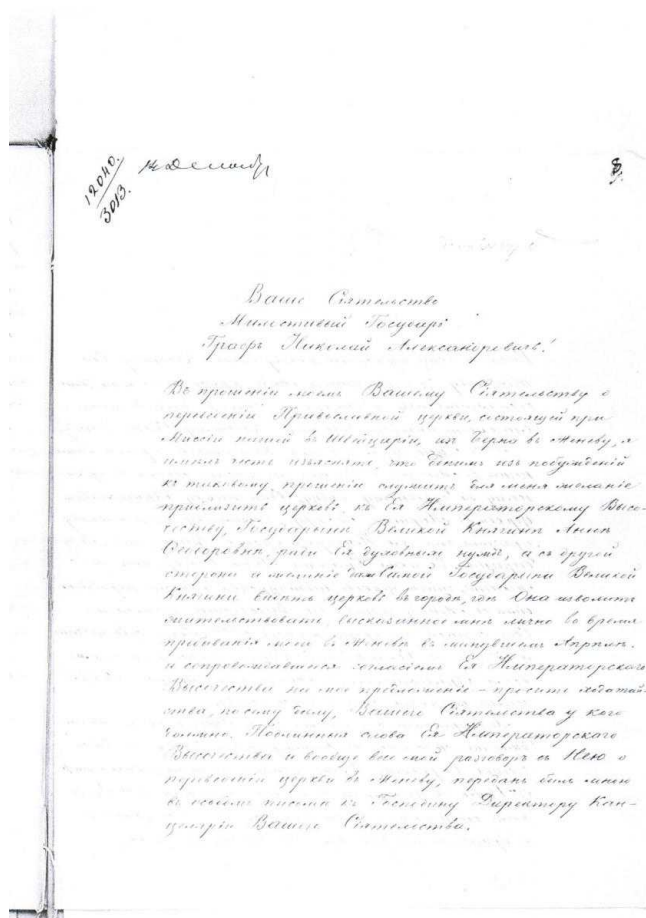 12040.
3013.
8.
Ваше Сіятельство
Милостивый Государь
Графъ Николай Александровичъ!
Въ прошеніи моемъ Вашему Сіятельству о
перенесеніи Православной церкви, состоящей при
Миссіи нашей въ Швейцаріи, изъ Берна въ Женеву, я
имѣлъ честь изъяснить, что однимъ изъ побужденій
къ таковому прошенію служитъ для меня желаніе
приблизить церковь къ Ея Императорскому Высо-
честву, Государынѣ Великой Княгинѣ Аннѣ
Ѳеодоровнѣ, ради Ея духовныхъ нуждъ, а съ другой
стороны и желаніе Самой Государыни Великой
Княгини видѣть церковь въ городѣ, гдѣ Она изволитъ
жительствовать, высказанное мнѣ лично во время
пребыванія моего въ Женевѣ въ минувшемъ Апрѣлѣ,
и сопровождавшееся согласіемъ Ея Императорскаго
Высочества на мое предложеніе – просить ходатай-
ства, по сему дѣлу, Вашего Сіятельства у кого
должно. Подлинныя слова Ея Императорскаго
Высочества и вообще весь мой разговоръ съ Нею о
перенесеніи церкви въ Женеву, переданъ былъ мною
въ особомъ письмѣ къ Господину Директору Кан-
целяріи Вашего Сіятельства.